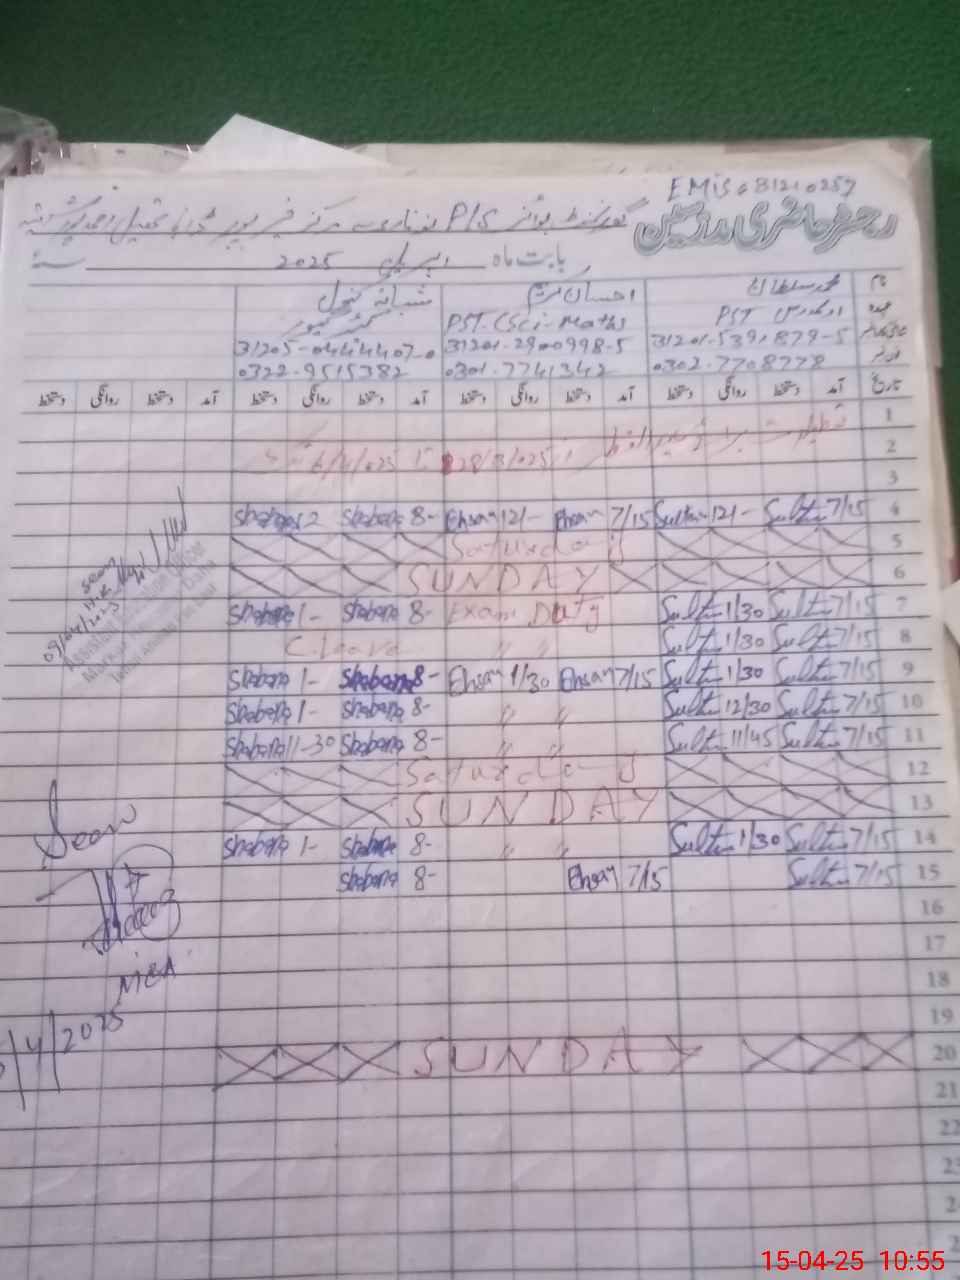 EMIS 31210257
رجسٹر حاضری مدرسین
گورنمنٹ بوائز P/S مرکز تحصیل
بابت ماہ اپریل 2025
نام محمد سلطان احسان شبانہ کنول
عہدہ PST PST (Sci-Math)
31201-5391879-5 31201-2900998-5 31205-0444407-0
0302-7708778 0301-7741342 0322-9515382
تاریخ آمد دستخط روانگی دستخط آمد دستخط روانگی دستخط آمد دستخط روانگی دستخط آمد دستخط روانگی دستخط
1
2 28/3/025 تا 6/4/025
3
4 Sultan 7/15 Sultan 12/- Ehsan 7/15 Ehsan 12/- Shabana 8- Shabana 12
5 Saturday
6 SUNDAY
7 Sultan 7/15 Sultan 1/30 Exam Duty Shabana 8- Shabana 1-
8 Sultan 7/15 Sultan 1/30 " " C.leave
9 Sultan 7/15 Sultan 1/30 Ehsan 7/15 Ehsan 1/30 Shabana 8- Shabana 1-
10 Sultan 7/15 Sultan 12/30 " " Shabana 8- Shabana 1-
11 Sultan 7/15 Sultan 11/45 " " Shabana 8- Shabana 11-30
12 Saturday
13 SUNDAY
14 Sultan 7/15 Sultan 1/30 " " Shabana 8- Shabana 1-
15 Sultan 7/15 Ehsan 7/15 Shabana 8-
16
17
18
19
20 SUNDAY
21
22
Seen
09/04/2025
Assistant Education Officer
Markaz
Seen
MEA
/4/2025
15-04-25 10:55